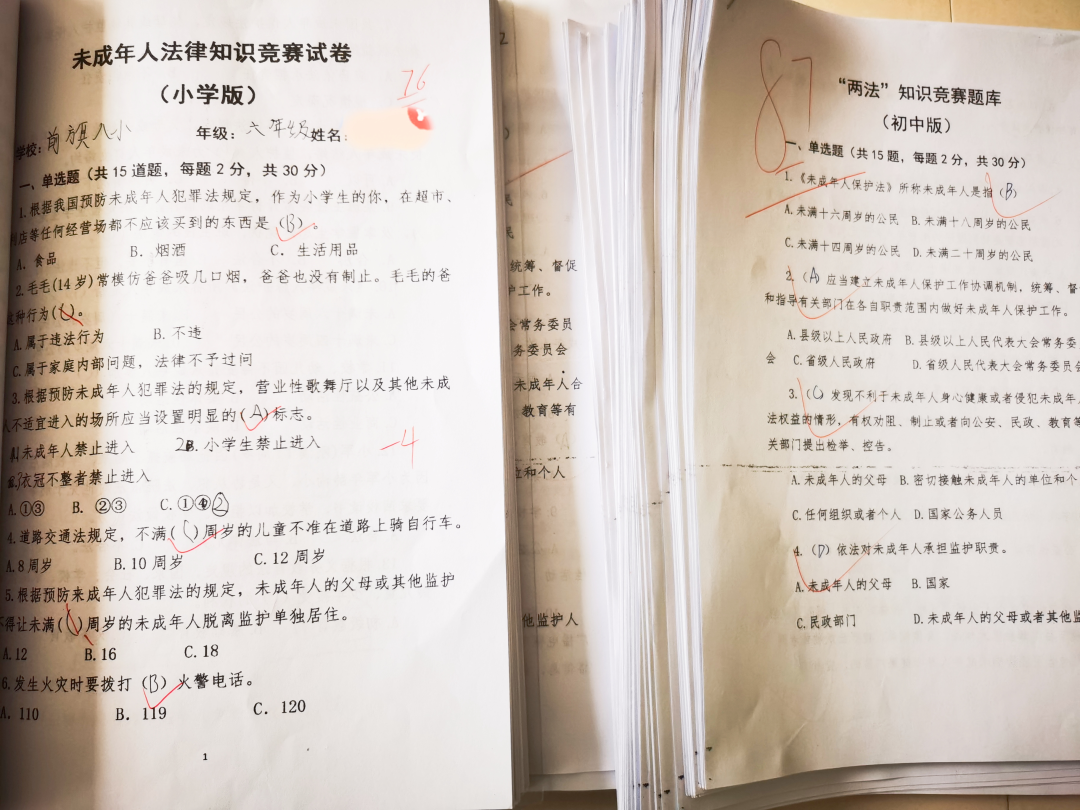 未成年人法律知识竞赛试卷
（小学版）
76
学校：前旗八小 年级：六年级 姓名：
一、单选题（共15道题，每题2分，共30分）
1.根据我国预防未成年人犯罪法规定，作为小学生的你，在超市、
店等任何经营场都不应该买到的东西是（B）。
A．食品 B．烟酒 C．生活用品
2.毛毛(14岁)常模仿爸爸吸几口烟，爸爸也没有制止。毛毛的爸
这种行为(C)。
A.属于违法行为 B.不违
C.属于家庭内部问题，法律不予过问
3.根据预防未成年人犯罪法的规定，营业性歌舞厅以及其他未成
人不适宜进入的场所应当设置明显的(A)标志。
未成年人禁止进入 2B.小学生禁止进入
衣冠不整者禁止进入
-4
A.①③ B. ②③ C.①②
4.道路交通法规定，不满(C)周岁的儿童不准在道路上骑自行车。
A.8周岁 B.10周岁 C.12周岁
5.根据预防未成年人犯罪法的规定，未成年人的父母或其他监护
不得让未满(C)周岁的未成年人脱离监护单独居住。
A.12 B.16 C.18
6.发生火灾时要拨打（B）火警电话。
A．110 B．119 C．120
1
统筹、督促
户工作。
会常务委员
务委员会
未成年人合
教育等有
位和个人
他监护人
87
“两法”知识竞赛题库
（初中版）
一、单选题（共15题，每题2分，共30分）
1.《未成年人保护法》所称未成年人是指（B）
A.未满十六周岁的公民 B.未满十八周岁的公民
C.未满十四周岁的公民 D.未满二十周岁的公民
2.（A）应当建立未成年人保护工作协调机制，统筹、督
和指导有关部门在各自职责范围内做好未成年人保护工作。
A.县级以上人民政府 B.县级以上人民代表大会常务委
会 C.省级人民政府 D.省级人民代表大会常务委员会
3.（C）发现不利于未成年人身心健康或者侵犯未成年人
法权益的情形，有权劝阻、制止或者向公安、民政、教育等
关部门提出检举、控告。
A.未成年人的父母 B.密切接触未成年人的单位和个
C.任何组织或者个人 D.国家公务人员
4.（D）依法对未成年人承担监护职责。
A.未成年人的父母 B.国家
C.民政部门 D.未成年人的父母或者其他监